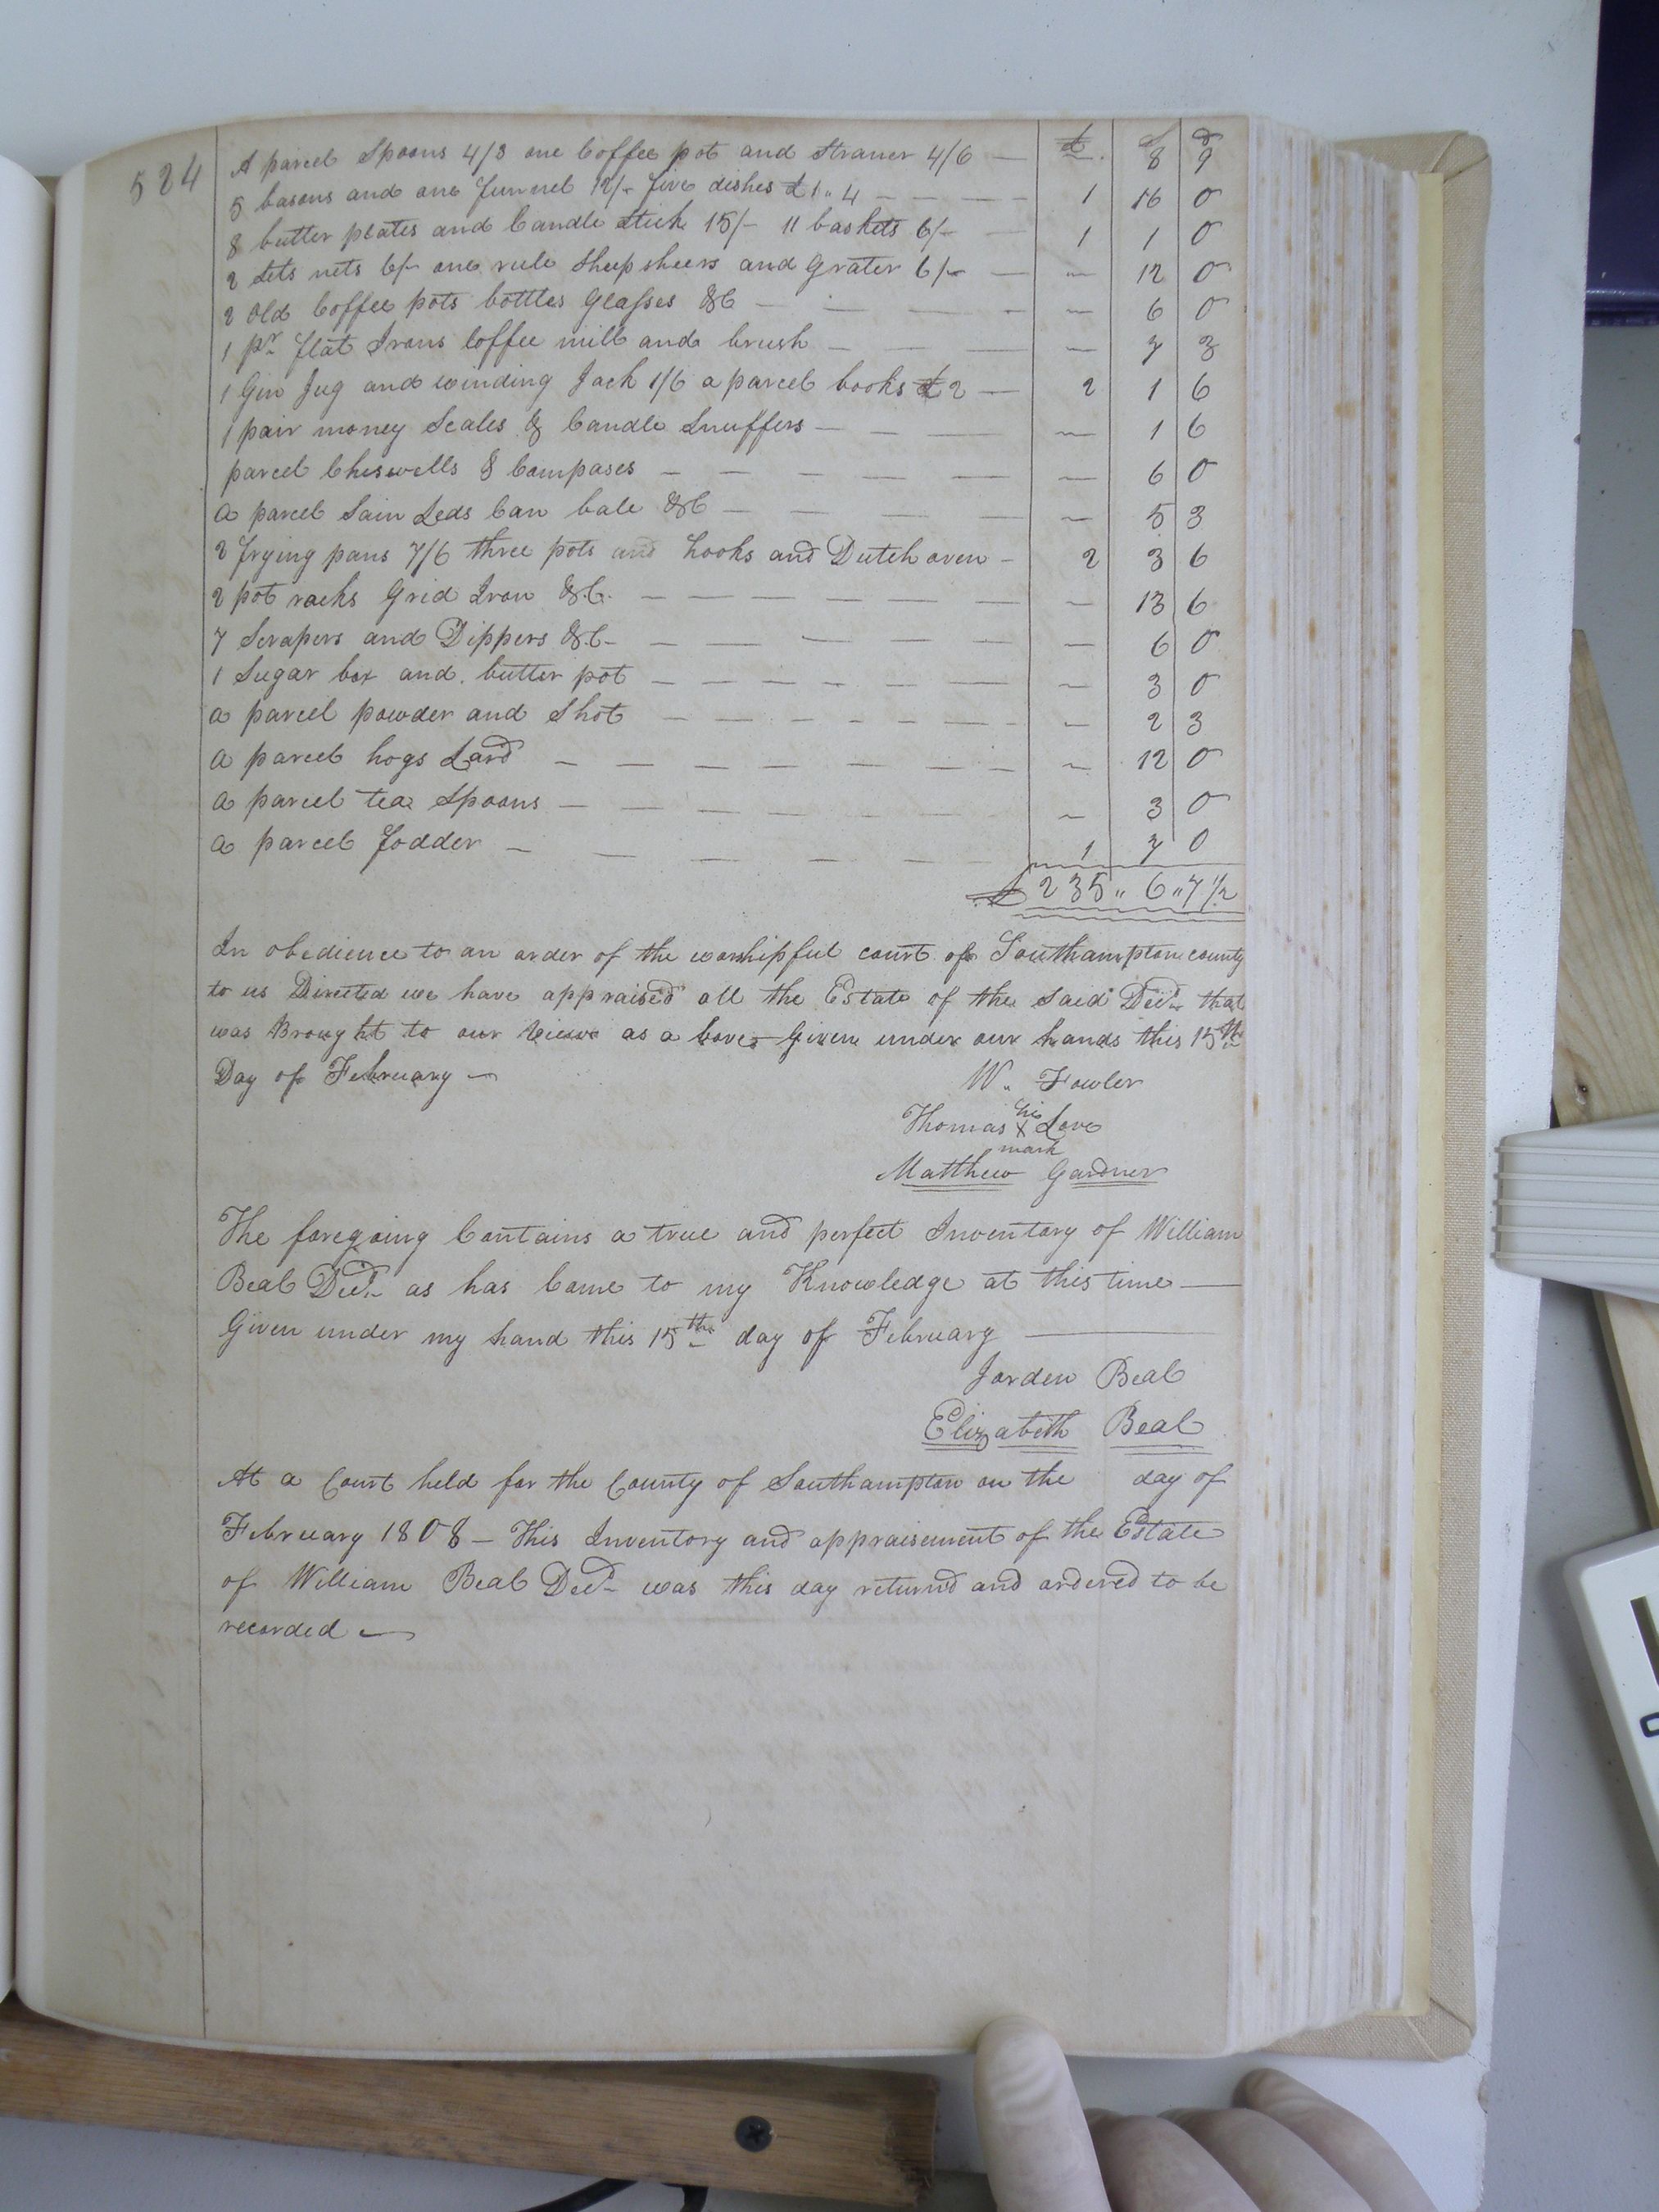 524
£ S d
A parcel Spoons 4/3 one Coffee pot and Straner 4/6 — ~ 8 9
5 basons and one funnel 12/- five dishes £1"4 — 1 16 0
8 butter plates and Candle Stick 15/- 11 baskets 6/- — 1 1 0
2 Sets nets 6/- one rule Sheep sheers and Grater 6/- — ~ 12 0
2 old Coffee pots bottles Glasses &C — ~ 6 0
1 pr flat Irons Coffee mill and brush — ~ 7 3
1 Gin Jug and winding Jack 1/6 a parcel books £2 — 2 1 6
1 pair money Scales & Candle Snuffers — ~ 1 6
parcel Chiswells & Compases — ~ 6 0
a parcel Sain Leds Can bale &C — ~ 5 3
2 frying pans 7/6 three pots and hooks and Dutch oven — 2 3 6
2 pot racks Grid Iron &.C. — ~ 13 6
7 Scrapers and Dippers &.C — ~ 6 0
1 Sugar box and butter pot — ~ 3 0
a parcel powder and Shot — ~ 2 3
a parcel hogs Lard — ~ 12 0
a parcel tea Spoons — ~ 3 0
a parcel fodder — 1 7 0
£ 235 " 6 " 7 1/2
In obedience to an order of the worshipful court of Southampton county
to us Directed we have appraised all the Estate of the said Decd that
was Brought to our View as above Given under our hands this 15th
Day of February —
W. Fowler
his
Thomas X Love
mark
Matthew Gardner
The foregoing Contains a true and perfect Inventory of William
Beal Decd as has Came to my Knowledge at this time —
Given under my hand this 15th day of February —
Jorden Beal
Elizabeth Beal
At a Court held for the County of Southampton on the day of
February 1808 — This Inventory and appraisement of the Estate
of William Beal Decd was this day returnd and ordered to be
recorded —